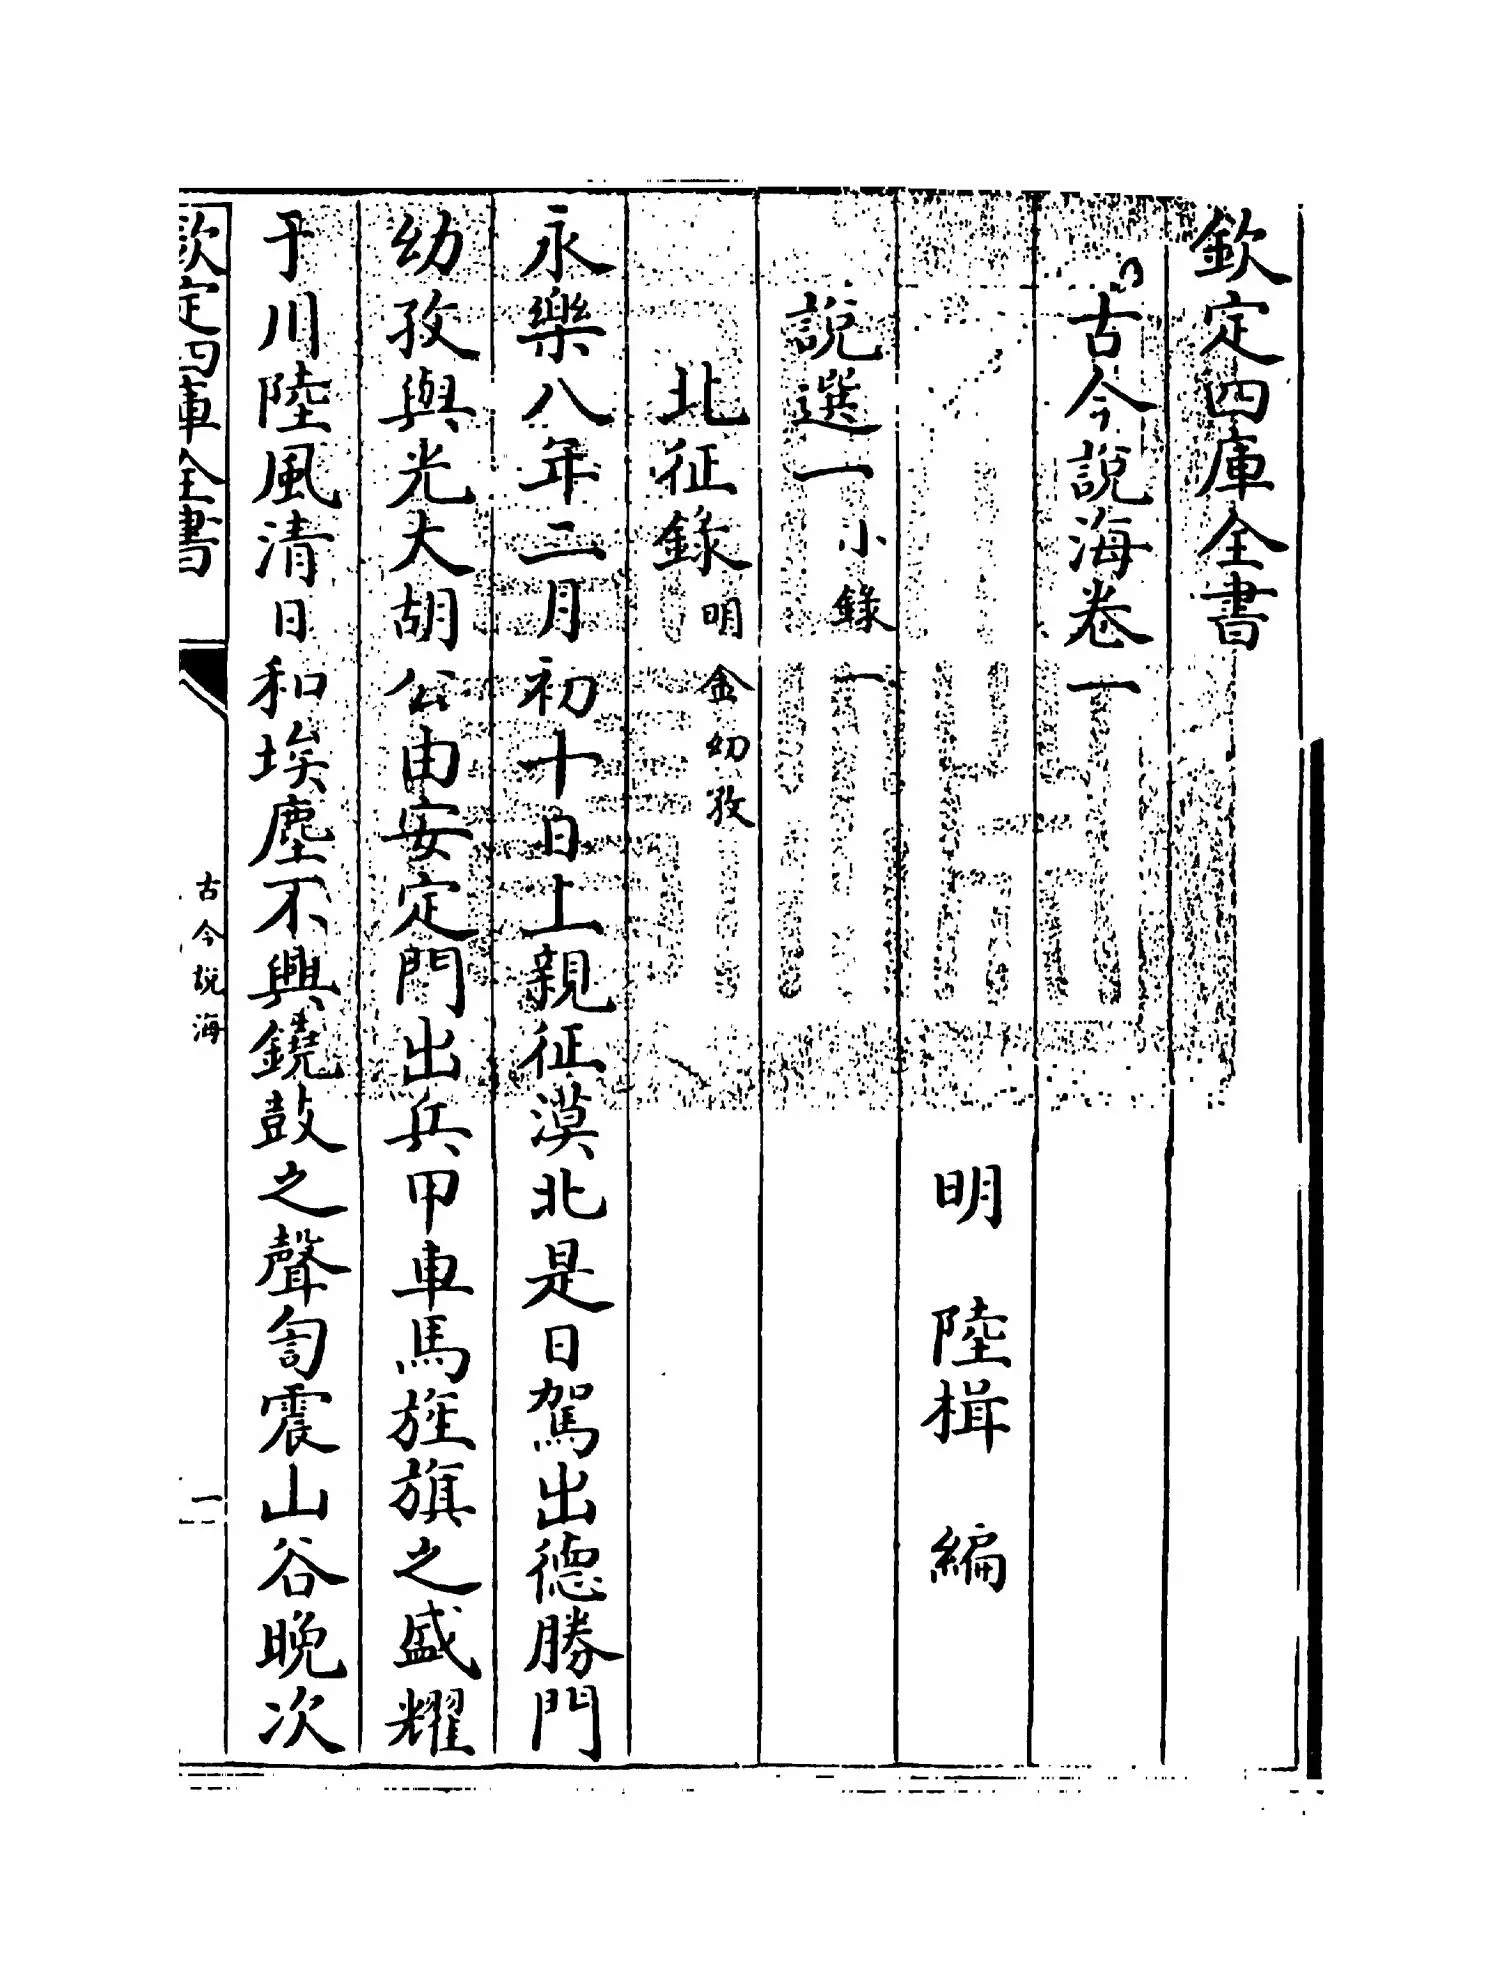 欽定四庫全書
古今說海卷一
明 陸楫 編
說選一 小錄一
北征錄 明金幼孜
永樂八年二月初十日上親征漠北是日駕出德勝門
幼孜與光大胡公由安定門出兵甲車馬旌旗之盛耀
于川陸風清日和埃塵不興鐃鼓之聲訇震山谷晚次
欽定四庫全書
古今說海
一